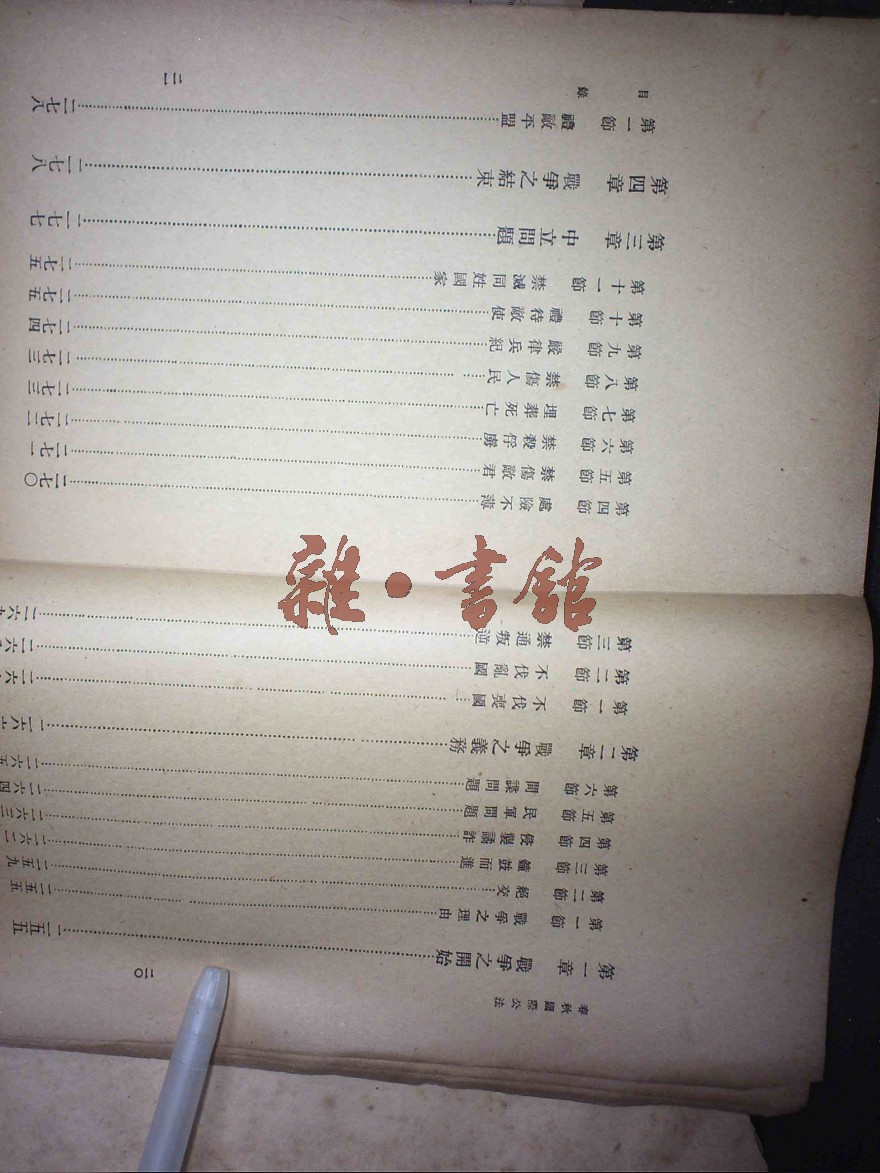 春秋國際公法
二〇
第一章 戰爭之開始……二五五
第一節 戰爭之理由……二五五
第二節 絕交……二五九
第三節 鐘鼓而進……二六二
第四節 侵襲譎詐……二六三
第五節 民軍問題……二六四
第六節 間諜問題……二六五
第二章 戰爭之義務……二六
第一節 不伐喪國……二六
第二節 不伐亂國……二六
第三節 禁通叛逆……二六
第四節 處險不薄……二七〇
第五節 禁傷敵君……二七一
第六節 禁殺俘虜……二七二
第七節 埋葬死亡……二七三
第八節 禁傷人民……二七三
第九節 嚴律兵紀……二七四
第十節 禮待敵使……二七五
第十一節 禁滅同姓國家……二七五
第三章 中立問題……二七七
第四章 戰爭之結束……二七八
第一節 禮敵平盟……二七八
目錄
二一
雜·書館